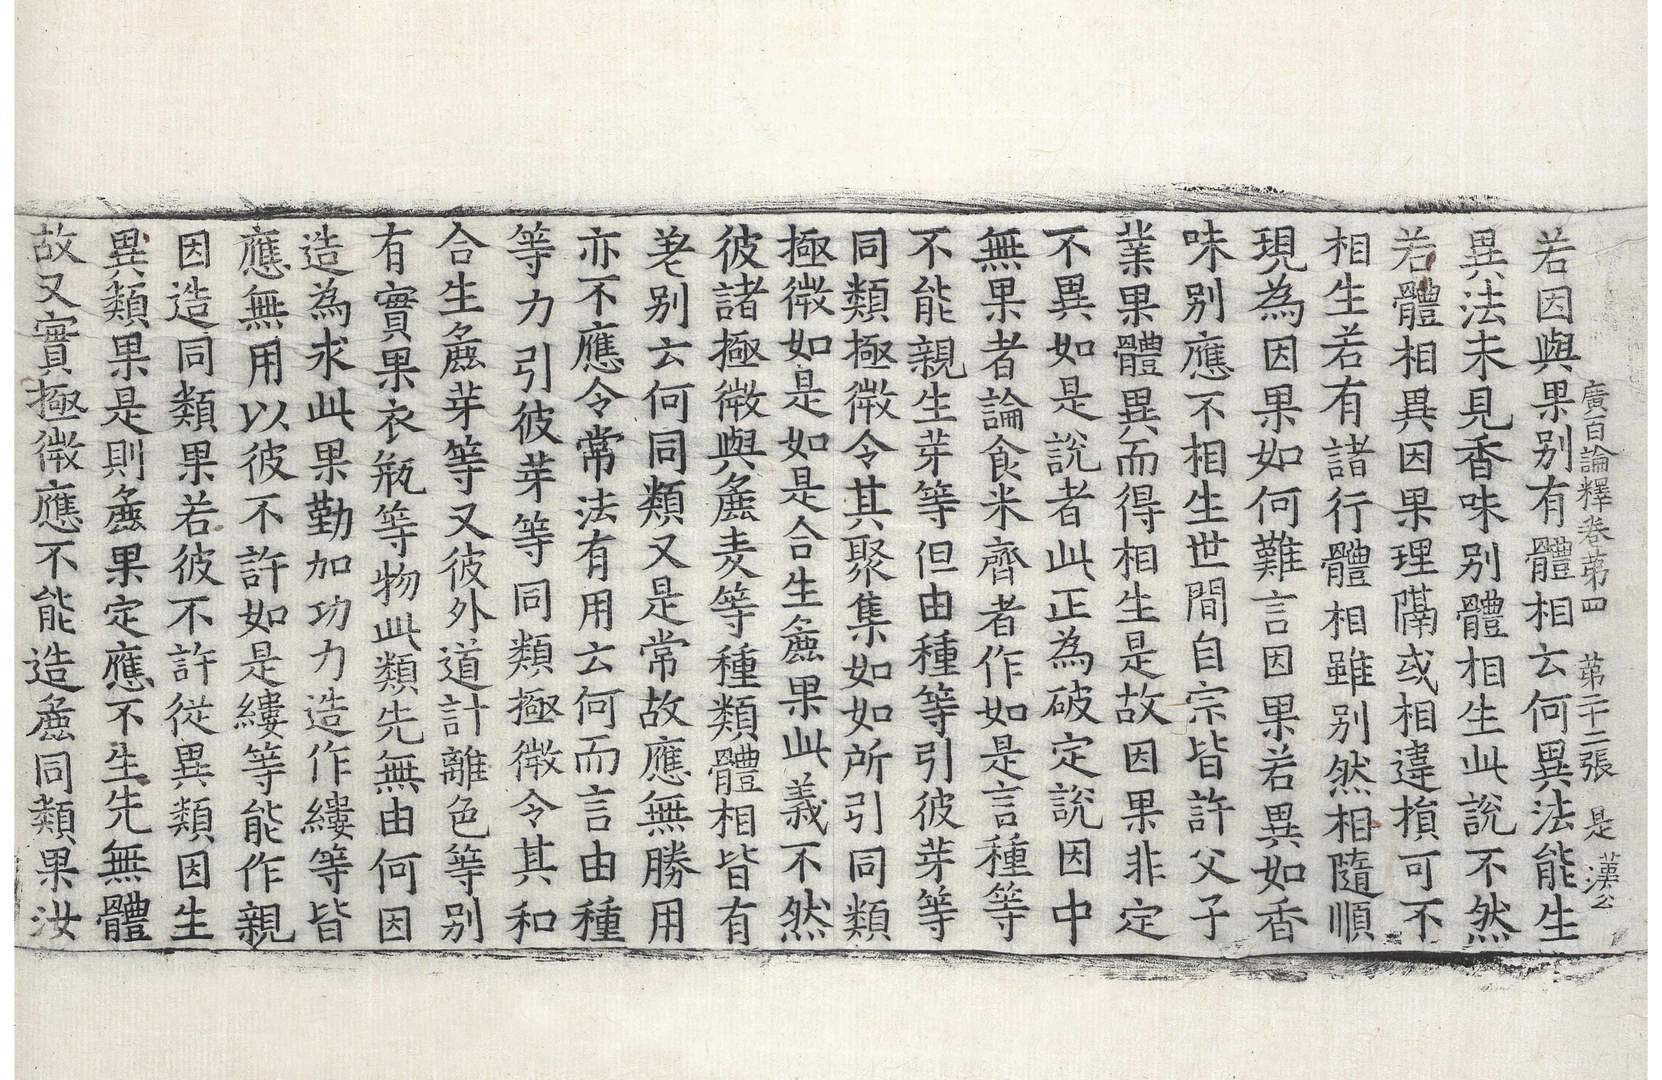 廣百論釋卷苐四 苐二十二張 是 漢公
若因與果别有體相云何異法能生
異法未見香味别體相生此說不然
若體相異因果理隔或相違損可不
相生若有諸行體相雖别然相隨順
現為因果如何難言因果若異如香
味别應不相生世間自宗皆許父子
業果體異而得相生是故因果非定
不異如是說者此正為破定說因中
無果者論食米齊者作如是言種等
不能親生芽等但由種等引彼芽等
同類極微令其聚集如如所引同類
極微如是如是合生麁果此義不然
彼諸極微與麁麦等種類體相皆有
差别云何同類又是常故應無勝用
亦不應令常法有用云何而言由種
等力引彼芽等同類極微令其和
合生麁芽等又彼外道計離色等别
有實果衣瓶等物此類先無由何因
造為求此果勤加功力造作縷等皆
應無用以彼不許如是縷等能作親
因造同類果若彼不許從異類因生
異類果是則麁果定應不生先無體
故又實極微應不能造麁同類果汝